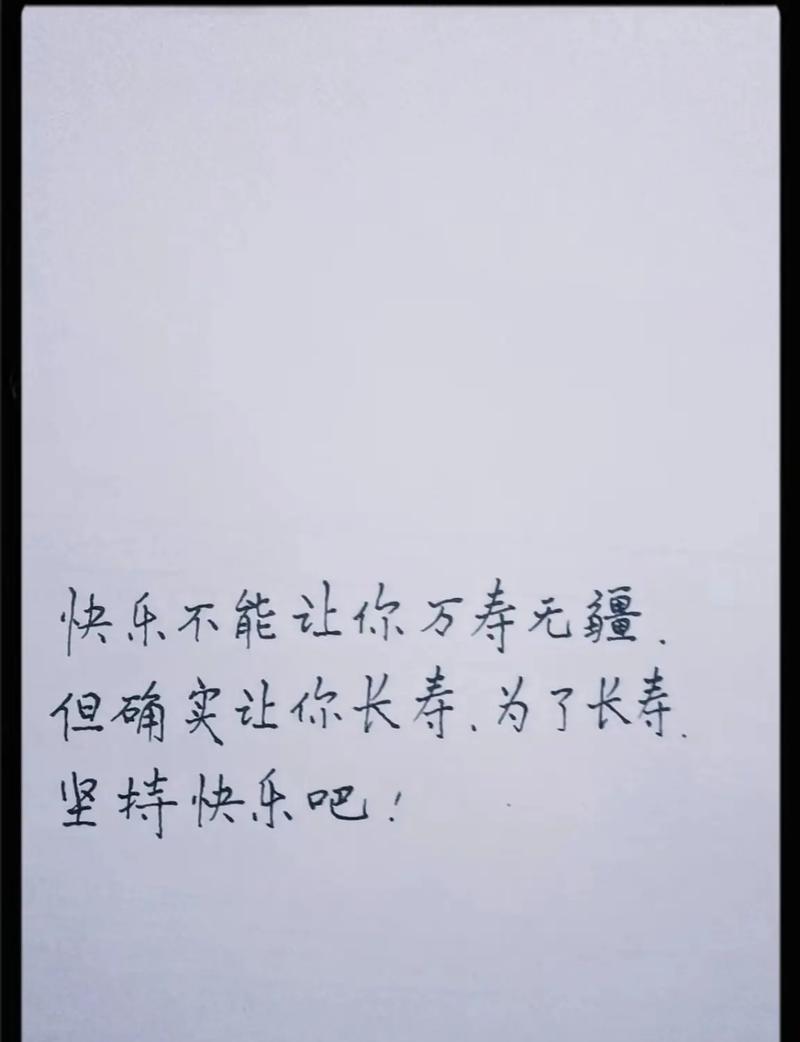 快乐不能让你万寿无疆.
但确实让你长寿.为了长寿.
坚持快乐吧!